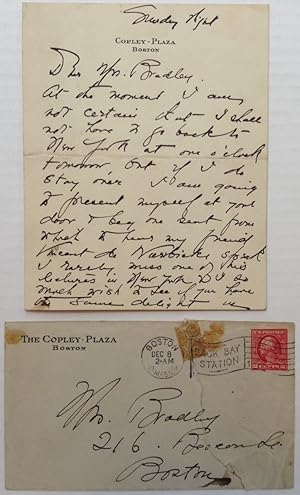 Sunday night
COPLEY-PLAZA
BOSTON
Dear Mrs. Bradley.
At the moment I am
not certain but I shall
not have to go back to
New York at one o'clock
tomorrow but if I do
stay over I am going
to present myself at your
door & beg one seat from
which to hear my friend
Vincent de speak
I rarely miss one of his
lectures in New York & I so
much wish to see if you have
the same delight in
THE COPLEY-PLAZA
BOSTON
BOSTON
DEC 8
2-AM
MASS.
BACK BAY
STATION
2 CENTS 2
Mrs. Bradley
216. Beacon St.
Boston